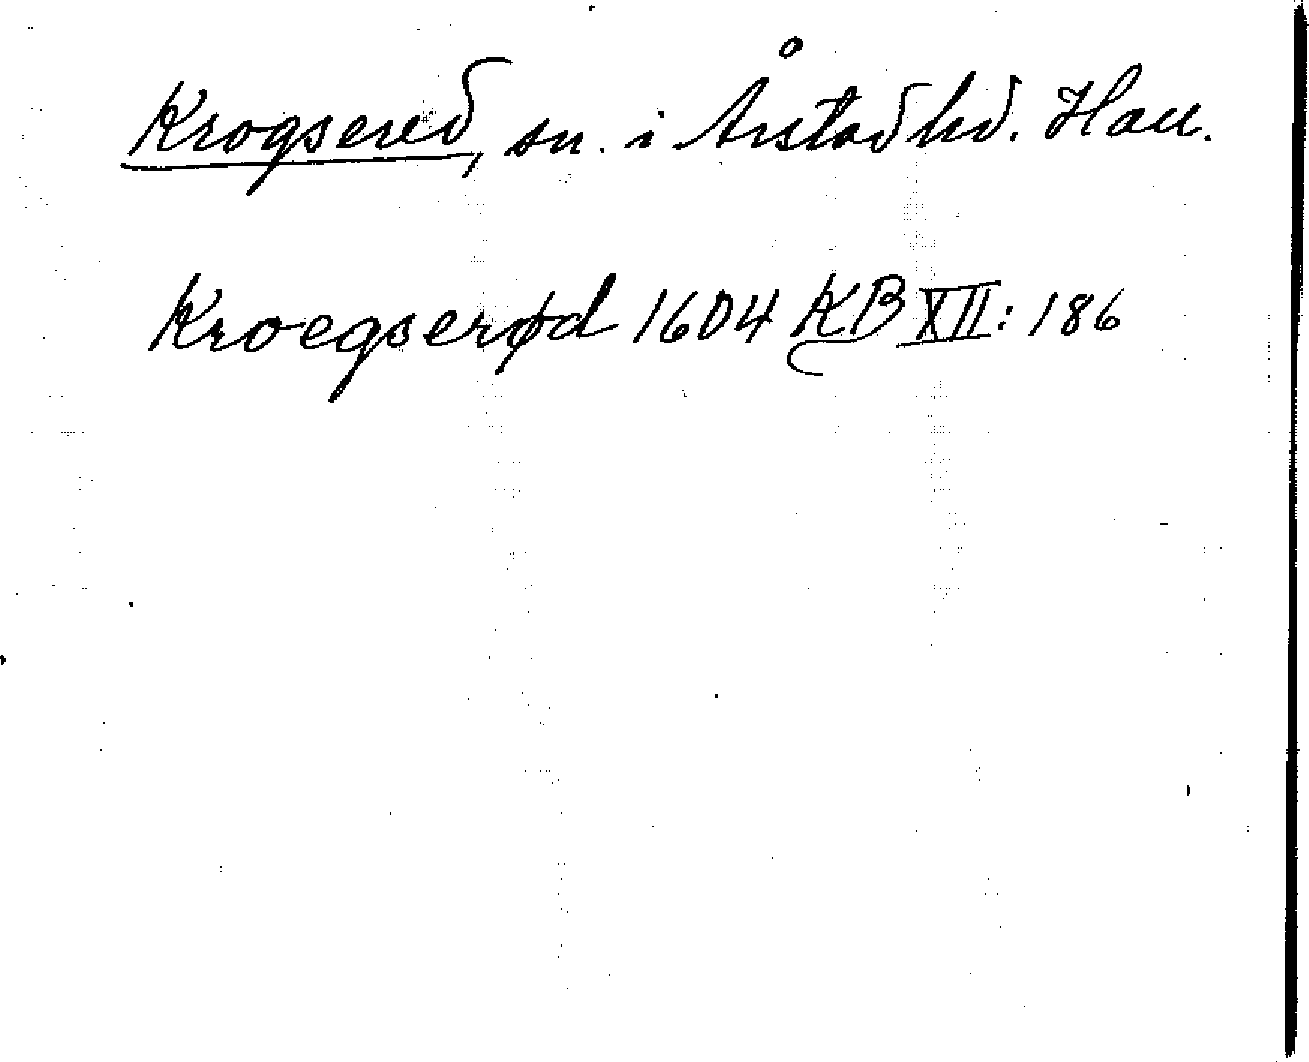 Krogsered, sn. i Årstad hd. Hall.
Kroegserød 1604 KB XII: 186